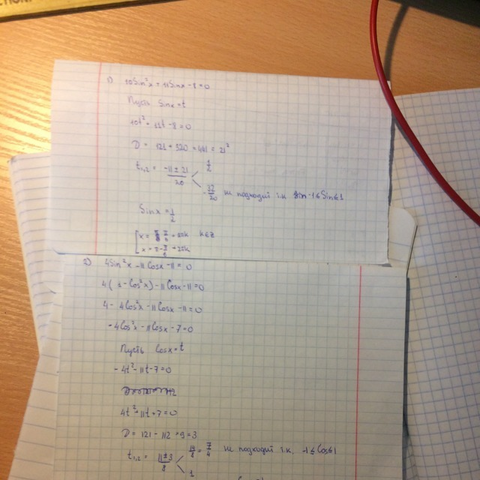 1) 10Sin²x + 11Sinx - 8 = 0
Пусть Sinx = t
10t² + 11t - 8 = 0
D = 121 + 320 = 441 = 21²
t₁,₂ = -11 ± 21 / 20
1/2
-32/20 не подходит т.к. -1≤Sin≤1
Sinx = 1/2
2) 4Sin²x - 11Cosx - 11 = 0
4(1 - Cos²x) - 11Cosx - 11 = 0
4 - 4Cos²x - 11Cosx - 11 = 0
-4Cos²x - 11Cosx - 7 = 0
Пусть Cosx = t
-4t² - 11t - 7 = 0
4t² + 11t + 7 = 0
D = 121 - 112 = 9 = 3
t₁,₂ = 11±3 / 8
14/8 = 7/4 не подходит т.к. -1≤Cos≤1
1